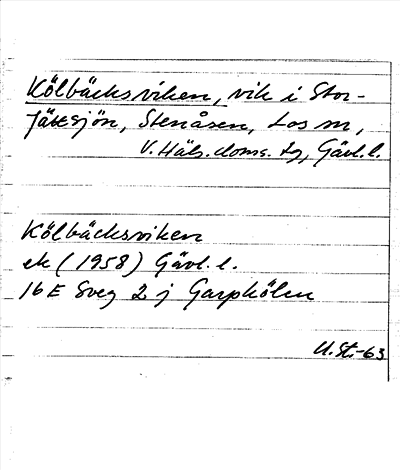 Kölbäcksviken, vik i Stor-
Jättsjön, Stenåsen, Los sn,
V. Häls. doms. tg, Gävl. l.
Kölbäcksviken
ek (1958) Gävl. l.
16 E Sveg 2 j Garpkölen
U. St.-63